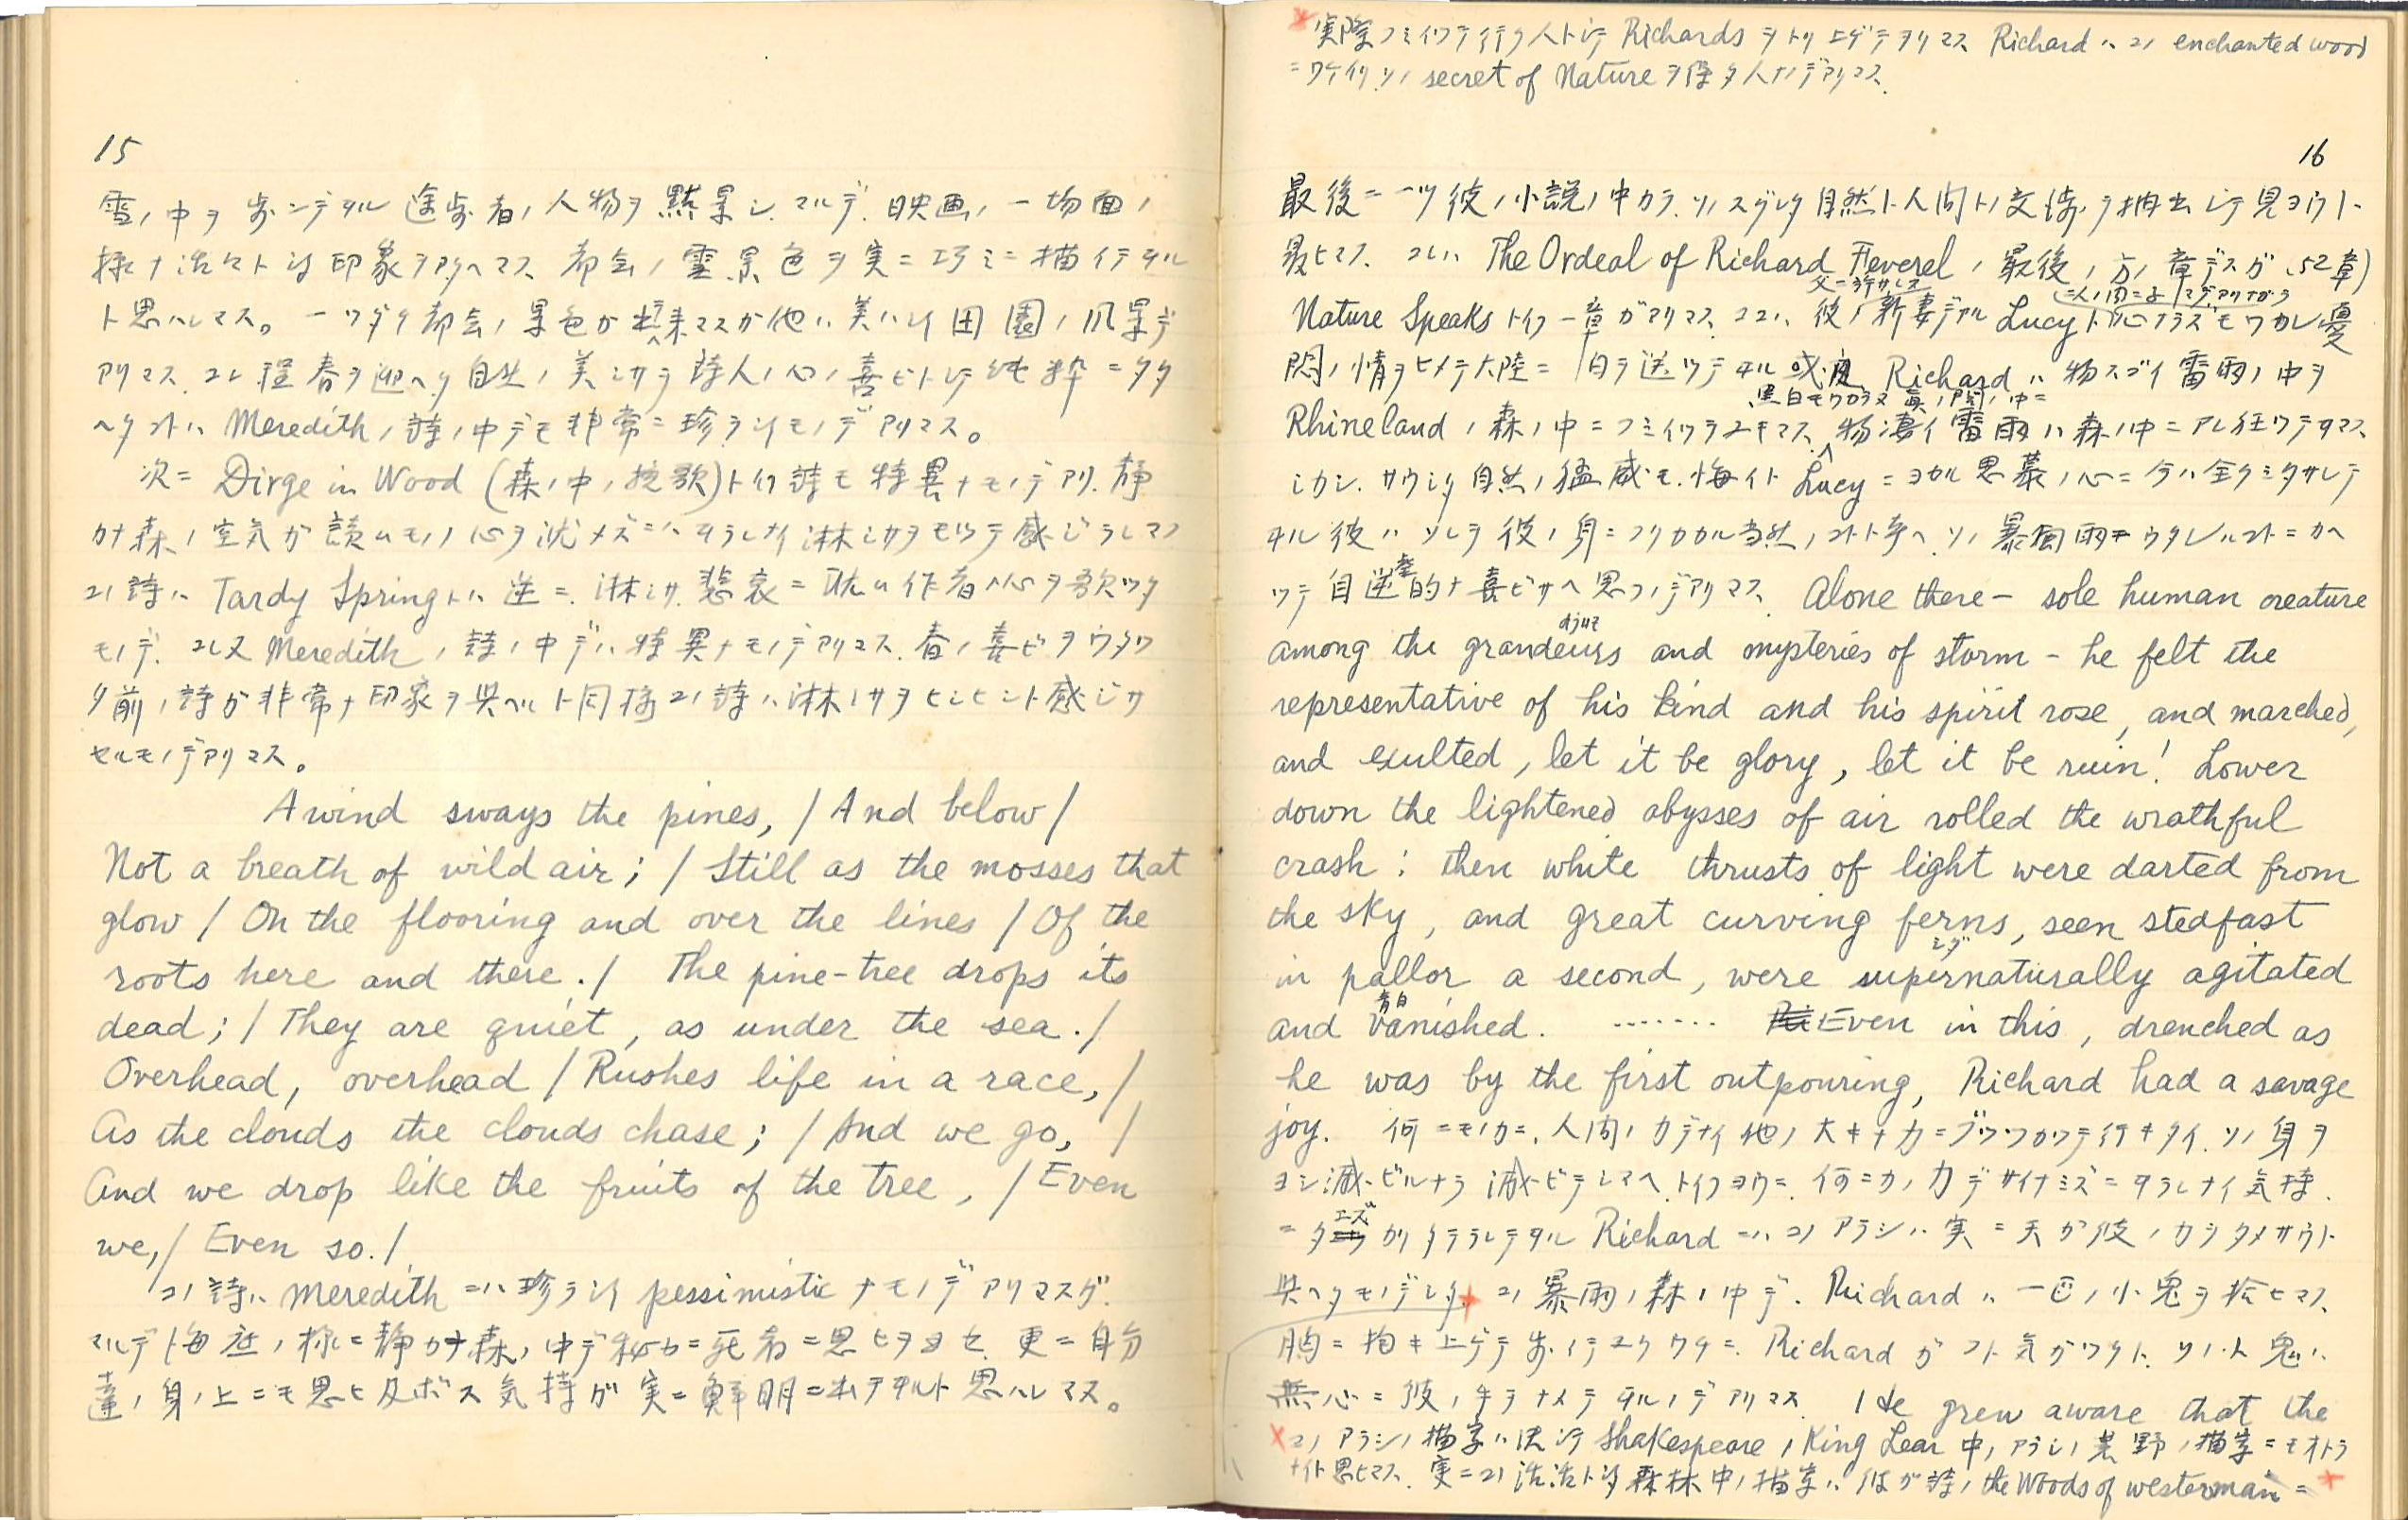 15
雪ノ中ヲ歩ンデヰル途歩者ノ人物ヲ黙景シ、マルデ映画ノ一場面ノ
様ナ活々トシタ印象ヲアタヘマス 都会ノ雪景色ヲ実ニ巧ミニ描イテヰル
ト思ハレマス。一ツダケ都会ノ景色が出テ来マスが他ハ美ハシイ田園ノ風景デ
アリマス コレ程春ヲ迎ヘタ自然ノ美シサヲ詩人ノ心ノ喜ビトシテ純粋ニタタ
ヘタコトハ Meredithノ詩ノ中デモ非常ニ珍ラシイモノデアリマス。
次ニ Dirge in Wood (森ノ中ノ挽歌)トイフ詩モ特異ナモノデアリ、静
カナ森ノ空気が読ムモノノ心ヲ沈メズニハヰラレナイ淋シサヲモツテ感ジラレマス
コノ詩ハ Tardy Springトハ逆ニ、淋シサ 悲哀ニ耽ル作者ノ心ヲ歌ツタ
モノデ、コレ又 Meredithノ詩ノ中デハ特異ナモノデアリマス。春ノ喜ビヲウタツ
タ前ノ詩が非常ナ印象ヲ与ヘルト同様コノ詩ハ淋シサヲヒシヒシト感ジサ
セルモノデアリマス。
A wind sways the pines, / And below /
Not a breath of wild air; / Still as the mosses that
glow / On the flooring and over the lines / Of the
roots here and there. / The pine-tree drops its
dead; / They are quiet, as under the sea. /
Overhead, overhead / Rushes life in a race, /
As the clouds the clouds chase; / And we go, /
And we drop like the fruits of the tree, / Even
we, / Even so. /
コノ詩ハ Meredithニハ珍ラシイ pessimistic ナモノデアリマスガ、
マルデ海底ノ様ニ静カナ森ノ中デ秘カニ死者ニ思ヒヲヨセ 更ニ自分
達ノ身ノ上ニモ思ヒ及ボス気持ガ実ニ鮮明ニ出テヰルト思ハレマス。
実際フミイツテ行ク人トシテ Richardsヲトリ上ゲテヲリマス Richardハコノ enchanted wood
ニワケイリソノ secret of Natureヲ得タ人ナノデアリマス。
16
最後ニ一ツ彼ノ小説ノ中カラ、ソノスグレタ自然ト人間トノ交渉ヲ抽出シテ見ヨウト
思ヒマス コレハ The Ordeal of Richard Feverelノ最後ノ方ノ章デスガ(52章)
Nature Speaks トイフ一章ガアリマス ココハ 彼ノ新妻デアル Lucyト心ナラズモワカレ憂
悶ノ情ヲヒメテ大陸ニ日ヲ送ツテヰル或夜 Richardハ物スゴイ雷雨ノ中ヲ
Rhinelandノ森ノ中ニフミイツテユキマス 物凄イ雷雨ハ森ノ中ニアレ狂ツテヰマス
シカシ、サウシタ自然ノ猛威モ、悔イト Lucyニヨセル思慕ノ心ニ今ハ全クミタサレテ
ヰル彼ハソレヲ彼ノ身ニフリカカル当然ノコトト考ヘ、ソノ暴風雨ニウタレルコトニカヘ
ツテ自虐的ナ喜ビサヘ思フノデアリマス Alone there — sole human creature
among the grandeurs and mysteries of storm — he felt the
representative of his kind and his spirit rose, and marched,
and exulted, let it be glory, let it be ruin! Lower
down the lightened abysses of air rolled the wrathful
crash: then white thrusts of light were darted from
the sky, and great curving ferns, seen stedfast
in pallor a second, were supernaturally agitated
青白
and vanished. ....... Even in this, drenched as
he was by the first outpouring, Richard had a savage
joy. 何ニモノカニ、人間ノ力デナイ他ノ大キナ力ニブツツカツテ行キタイ、ソノ身ヲ
ヨシ滅ビルナラ滅ビテシマヘ、トイフヨウニ、何ニカノ力デサイナミズニヰラレナイ気持
ニタエズカリタテラレテヰル Richardニハコノアラシハ実ニ天が彼ノ力ヲタメサウト
与ヘタモノデシタ。コノ暴雨ノ森ノ中デ、Richardハ一匹ノ小兎ヲ拾ヒマス
胸ニ抱キ上ゲテ歩イテユクウチニ Richardガフト気ガツクト、ソノ小兎ハ
無心ニ彼ノ手ヲナメテヰルノデアリマス He grew aware that the
コノアラシノ描写ハ決シテ Shakespeareノ King Lear 中ノアラシノ荒野ノ描写ニモオトラ
ナイト思ヒマス 実ニコノ活活トシタ森林中ノ描写ハ彼が詩ノ the Woods of westermainニ